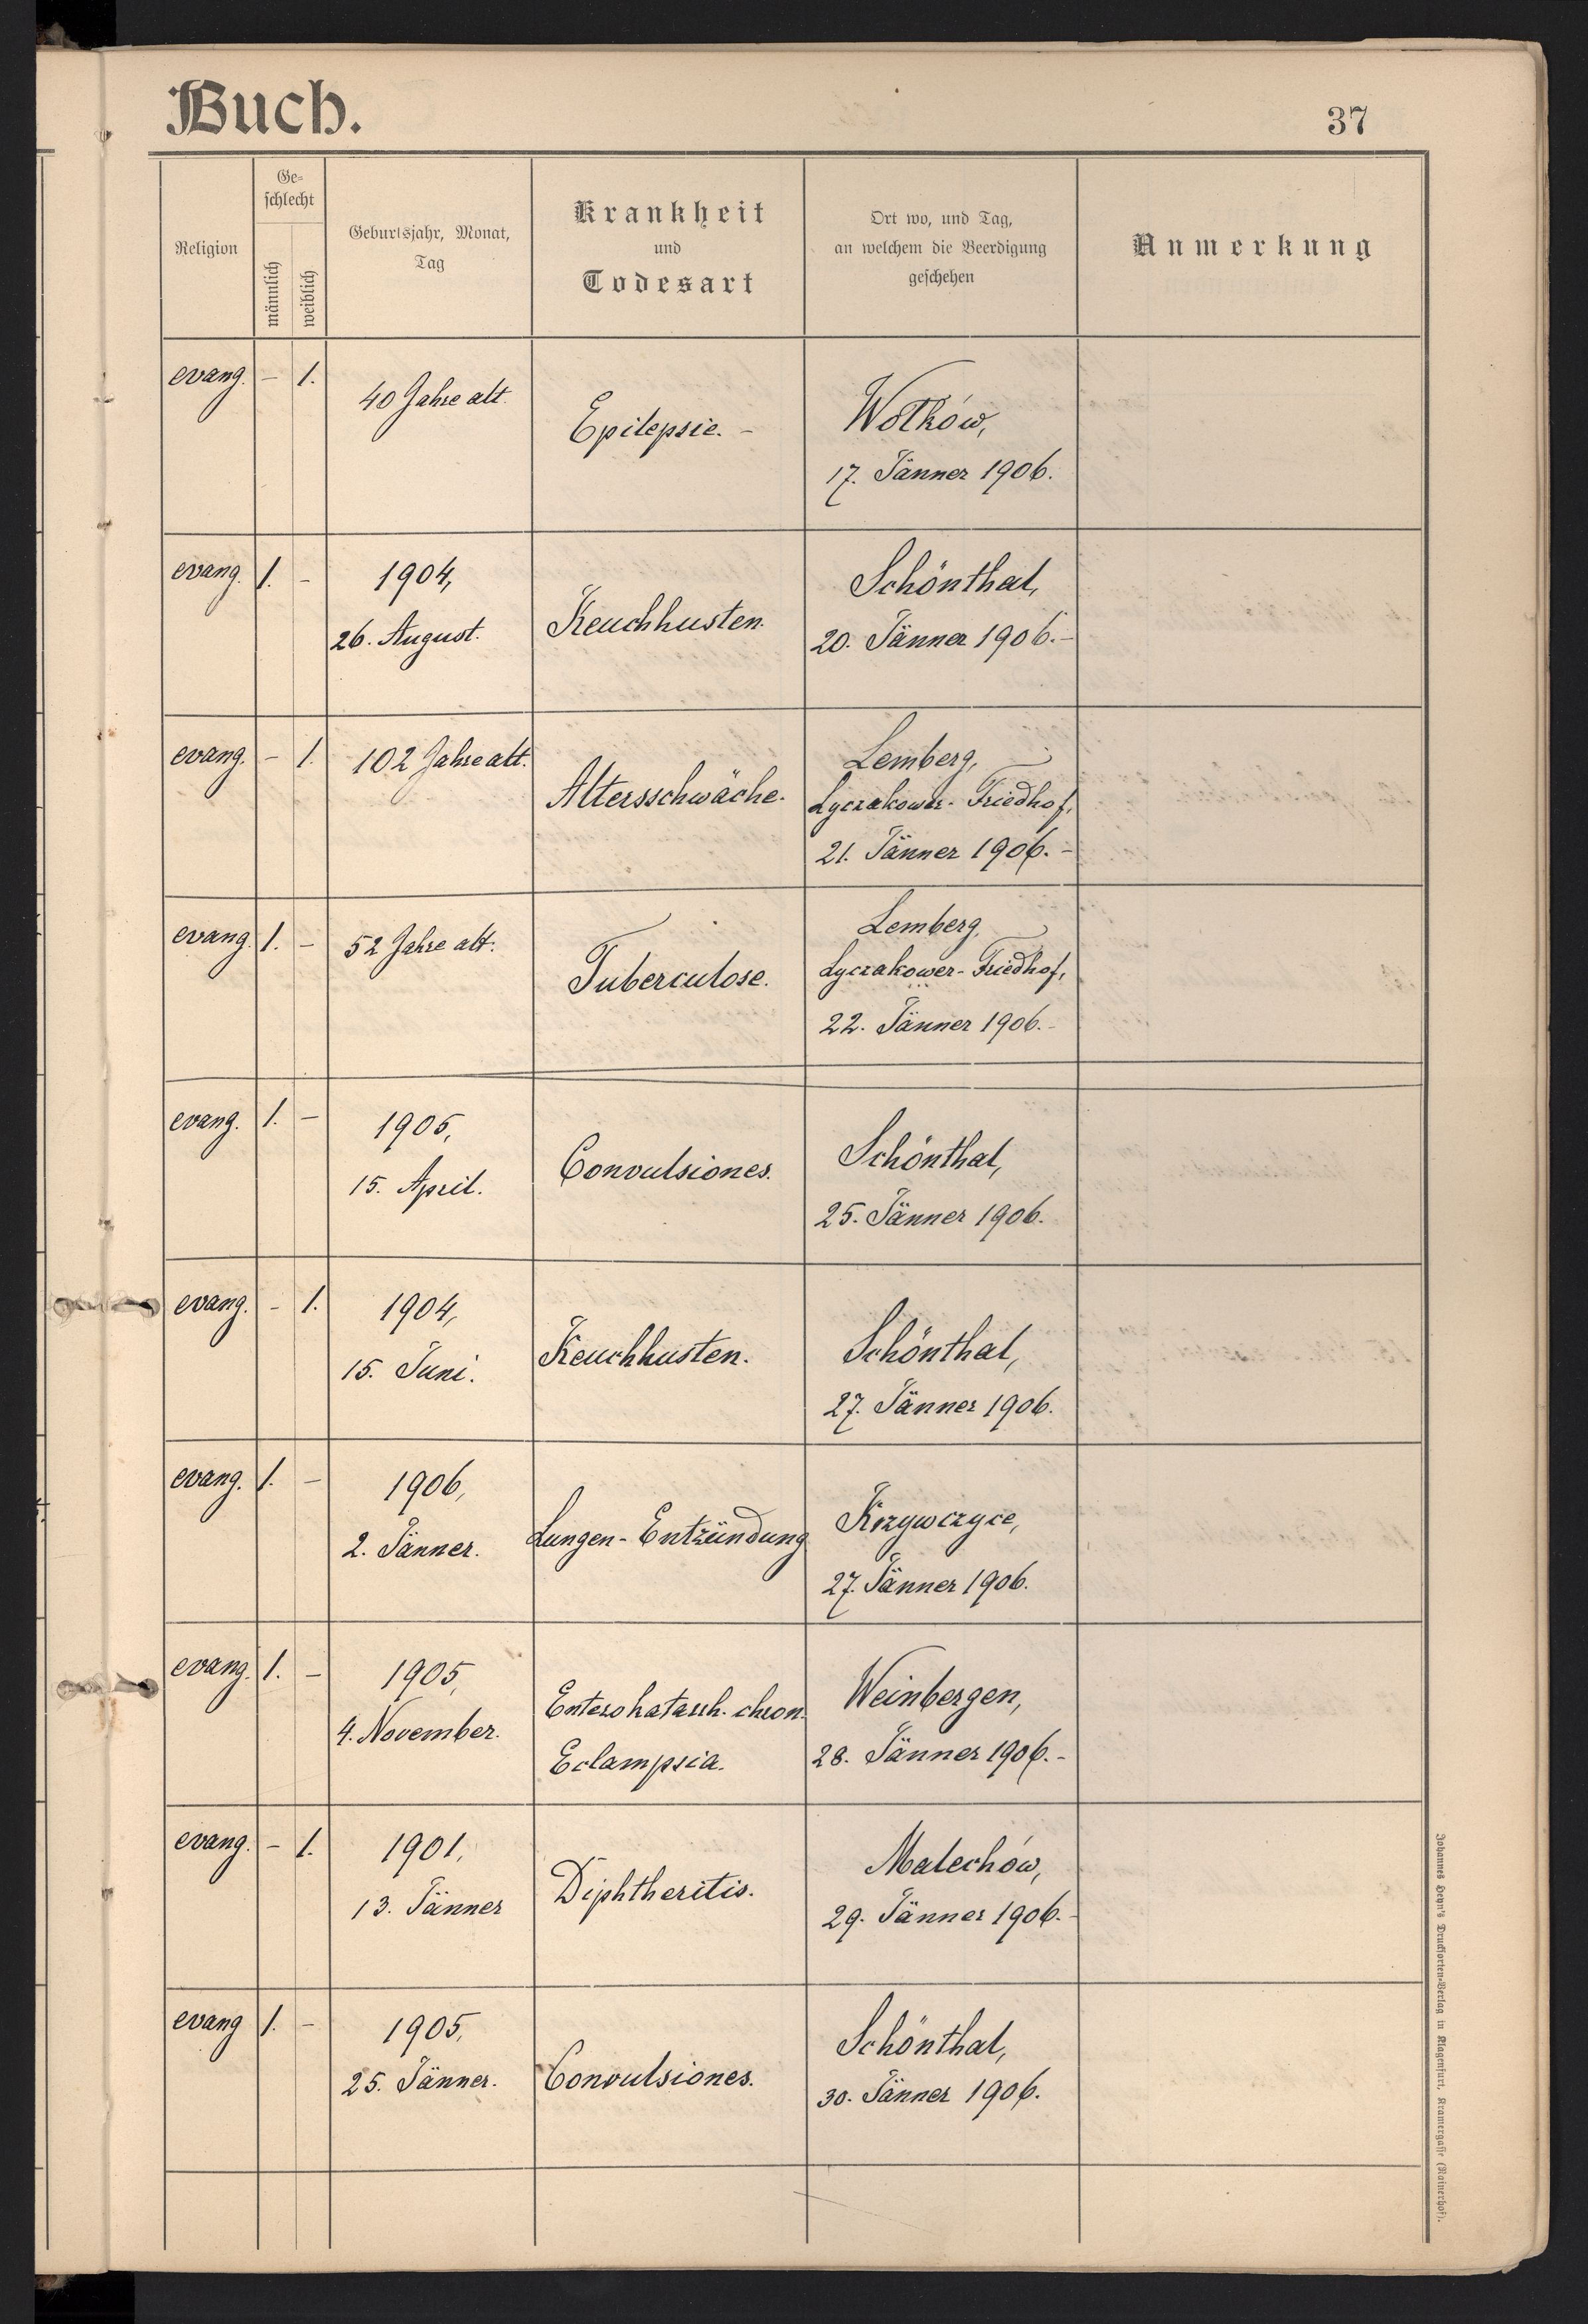 Buch.
37
Religion
Ge-
schlecht
männlich
weiblich
Geburtsjahr, Monat,
Tag
Krankheit
und
Todesart
Ort wo, und Tag,
an welchem die Beerdigung
geschehen
Anmerkung
evang. - 1. 40 Jahre alt. Epilepsie. - Wolków,
17. Jänner 1906.
evang. 1. - 1904, Keuchhusten. Schönthal,
26. August. 20. Jänner 1906. -
evang. - 1. 102 Jahre alt. Altersschwäche. Lemberg,
Lyczakower- Friedhof,
21. Jänner 1906. -
evang. 1. - 52 Jahre alt. Tuberculose. Lemberg,
Lyczakower- Friedhof,
22. Jänner 1906. -
evang. 1. - 1905, Convulsiones. Schönthal,
15. April. 25. Jänner 1906.
evang. - 1. 1904, Keuchhusten. Schönthal,
15. Juni. 27. Jänner 1906.
evang. 1. - 1906, Lungen-Entzündung Krzywczyce,
2. Jänner. 27. Jänner 1906.
evang. 1. - 1905, Enterokatarrh. chron. Weinbergen,
4. November. Eclampsia. 28. Jänner 1906. -
evang. - 1. 1901, Diphtheritis. Malechów,
13. Jänner 29. Jänner 1906. -
evang 1. - 1905, Convulsiones. Schönthal,
25. Jänner. 30. Jänner 1906.
Johannes Heyn's Drucksorten-Verlag in Klagenfurt, Kramergasse (Rainerhof).